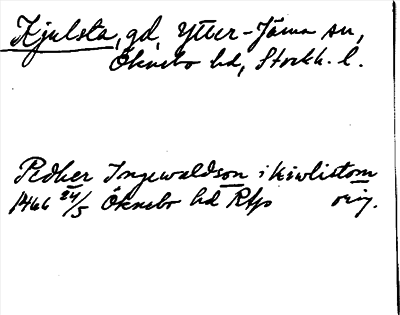 Kjulsta, gd, Ytter-Järna sn,
Öknebo hd, Stockh. l.
Pedher Ingewaldson i Kiwlistom
1466 24/5 Öknebo hd Rtp orig.